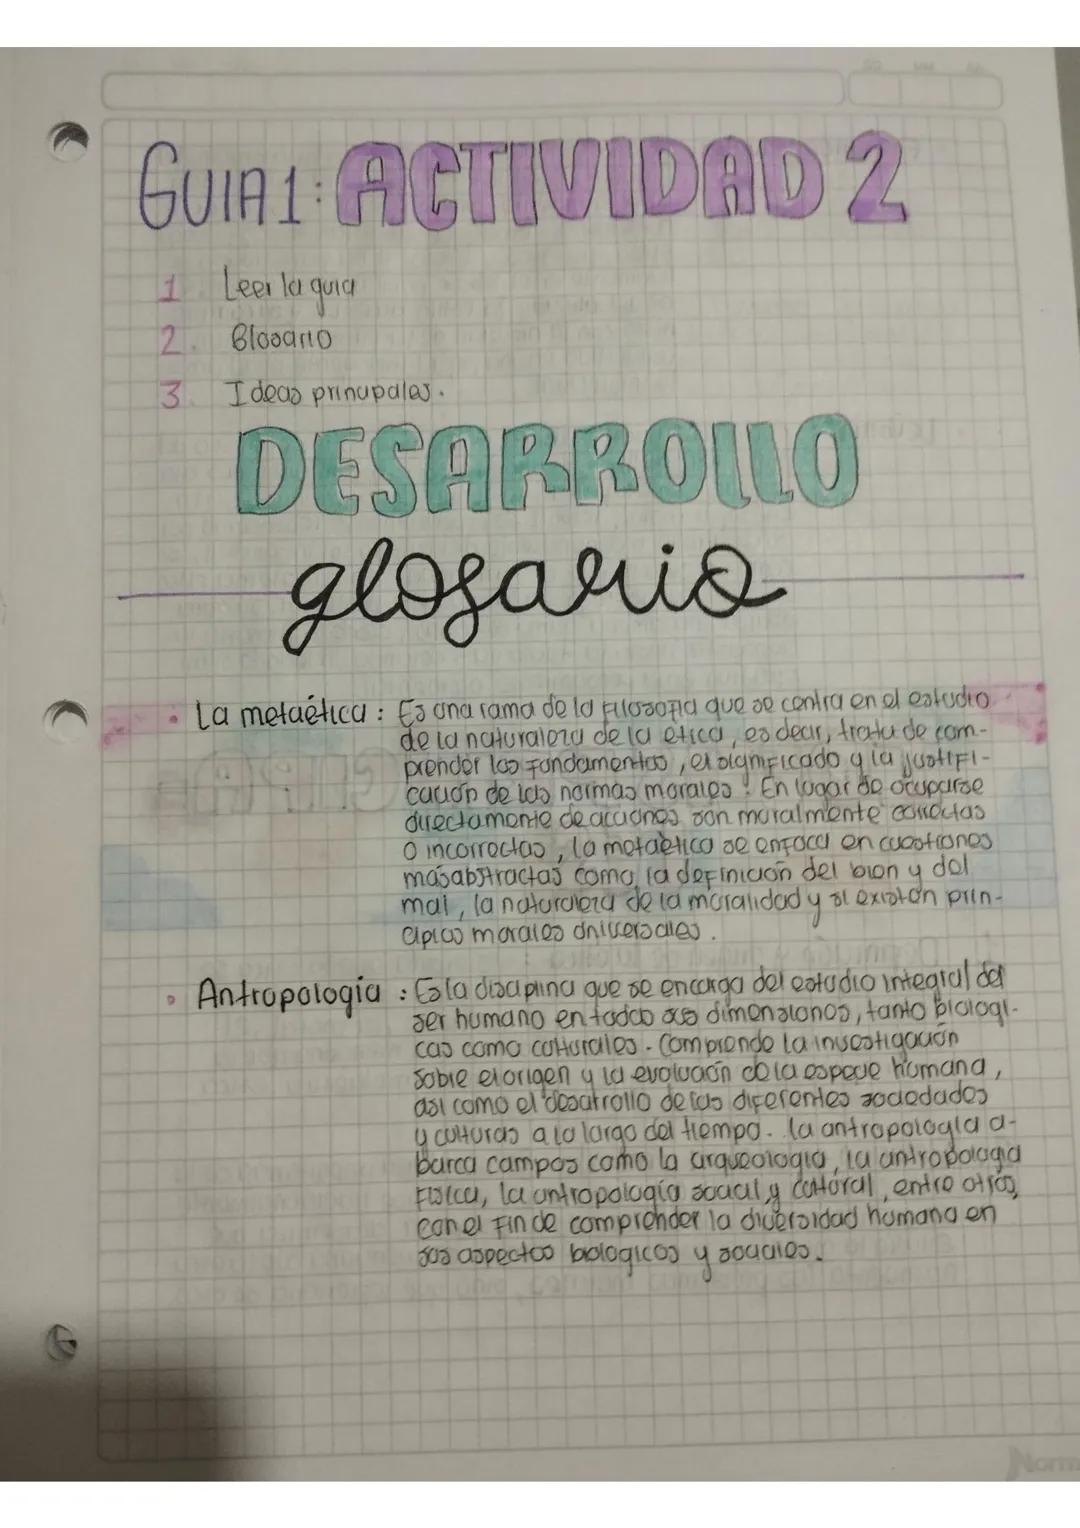 GUIA 1: ACTIVIDAD 2
1 Leer la guia
2. Glosario
3 Ideas principales.
DESARROLLO
glosario
• La metaética : Es una rama de la filosofia que se centra en el estudio
de la naturaleza de la etica, es decir, trata de com-
prender los fundamentos, el significado y la justifi-
cación de las normas morales. En lugar de ocuparse
directamente de acciones son moralmente correctas
o incorrectas, la metaética se enfoca en cuestiones
más abstractas como la definición del bien y del
mal, la naturaleza de la moralidad y si existen prin-
cipios morales universales.
• Antropologia : Es la disciplina que se encarga del estudio integral del
ser humano en todas sus dimensiones, tanto biologi-
cas como culturales. Comprende la investigación
sobre el origen y la evolución de la especie humana,
asi como el desarrollo de las diferentes sociedades
y culturas a lo largo del tiempo. la antropologia a-
barca campos como la arqueologia, la antropologia
fisica, la antropologia social y cultural, entre otras,
con el fin de comprender la diversidad humana en
sus aspectos biologicos y sociales.
Norm